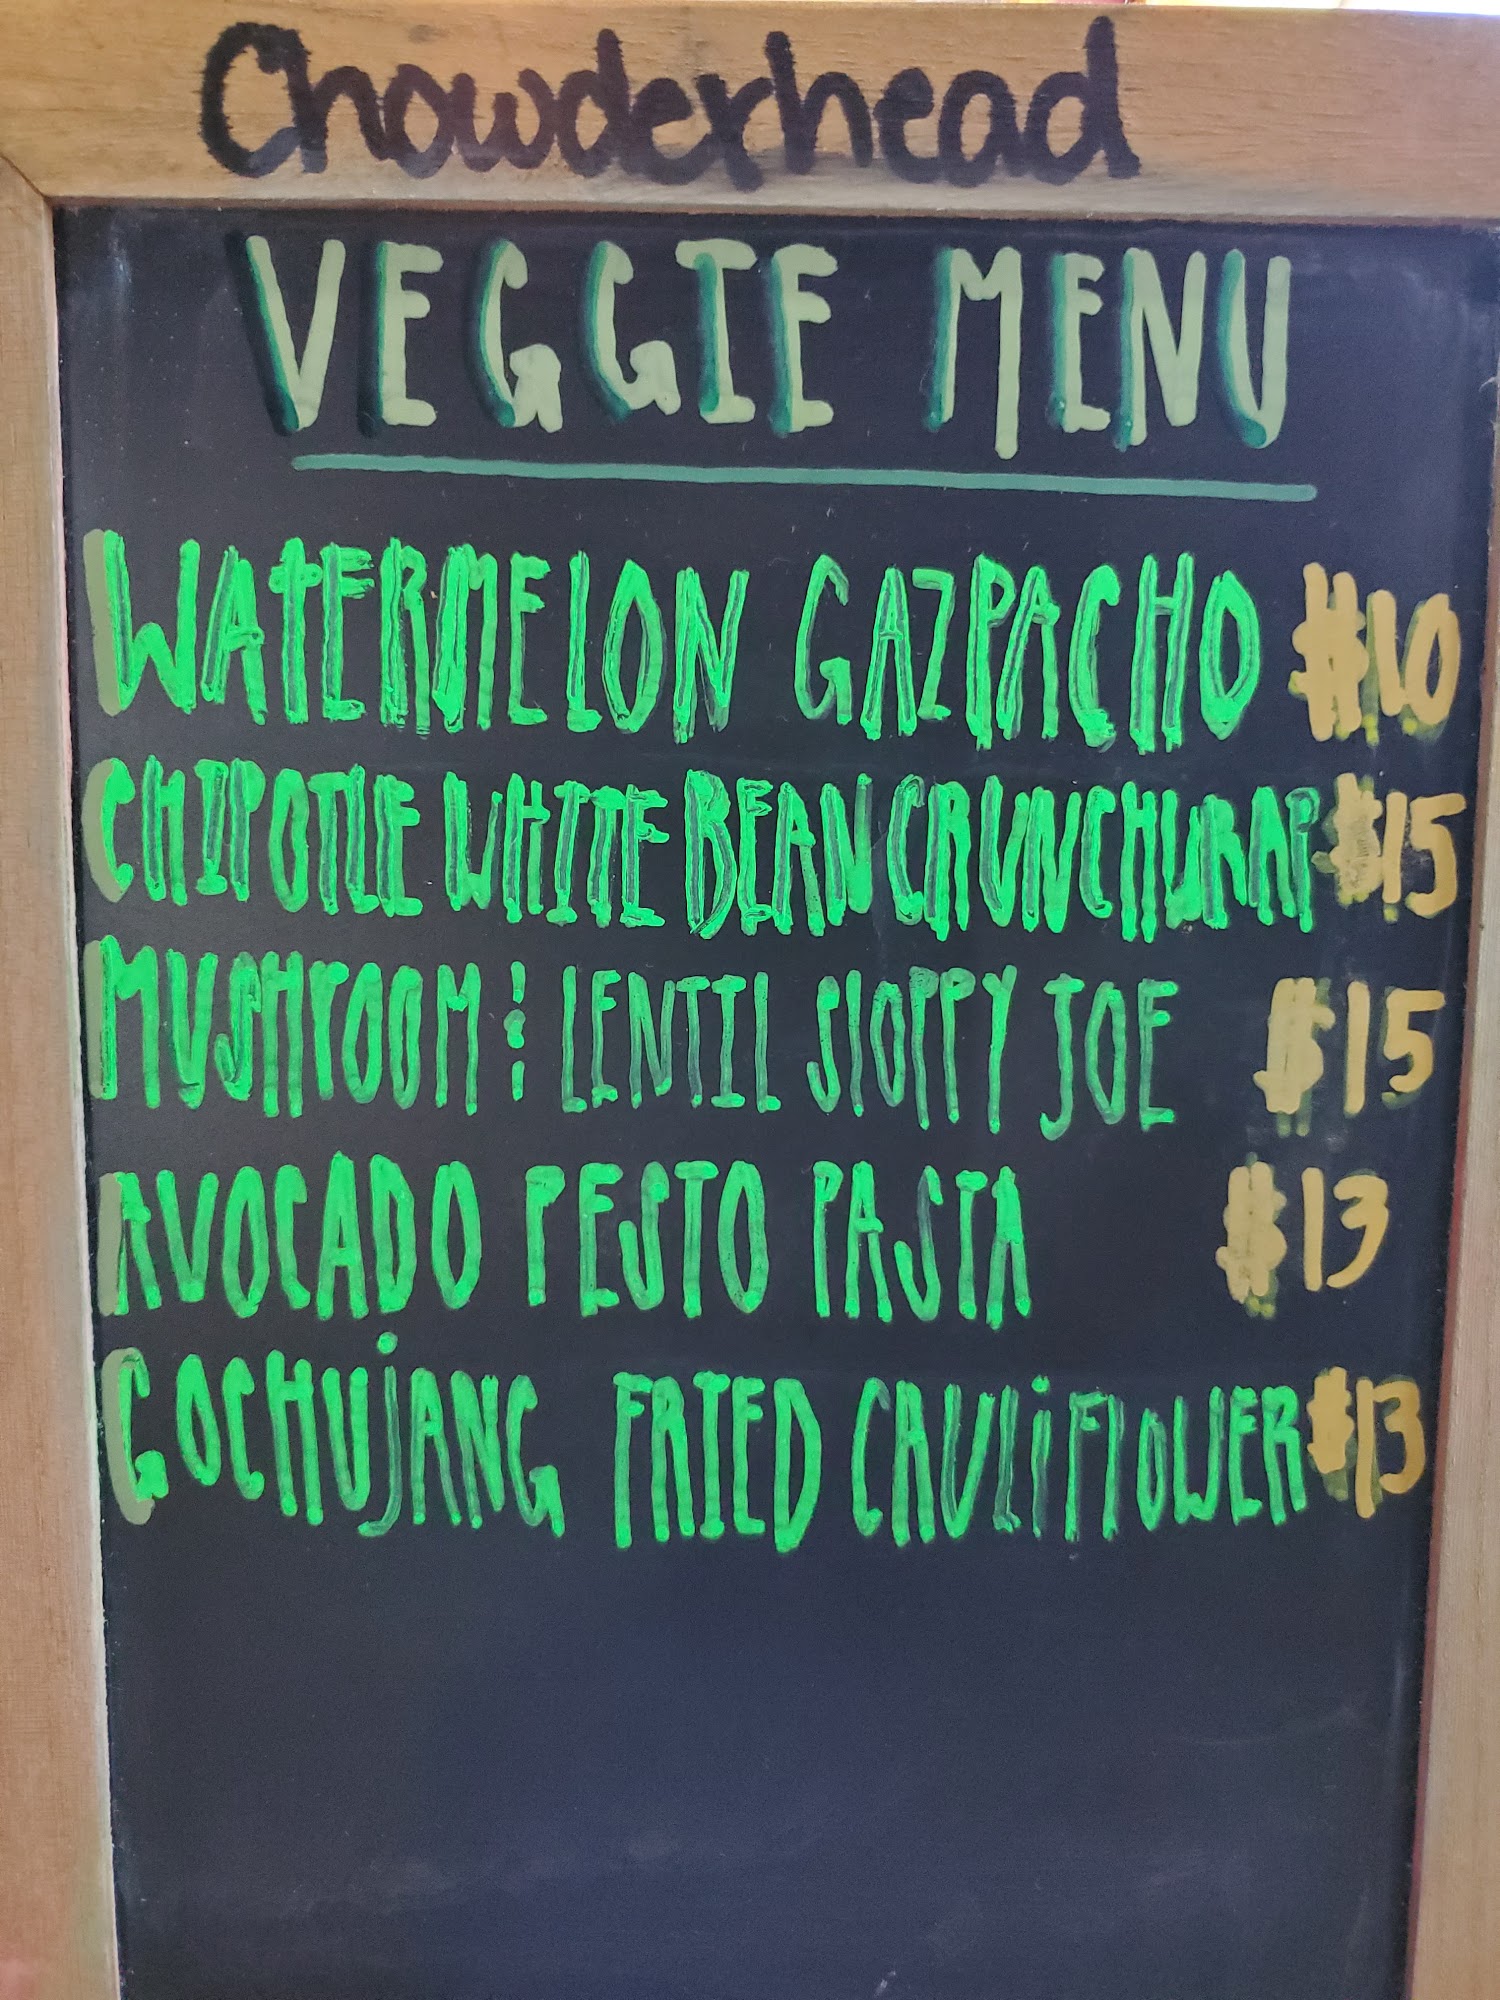 Chowderhead
VEGGIE MENU
WATERMELON GAZPACHO $10
CHIPOTLE WHITE BEAN CRUNCHWRAP $15
MUSHROOM & LENTIL SLOPPY JOE $15
AVOCADO PESTO PASTA $13
GOCHUJANG FRIED CAULIFLOWER $13